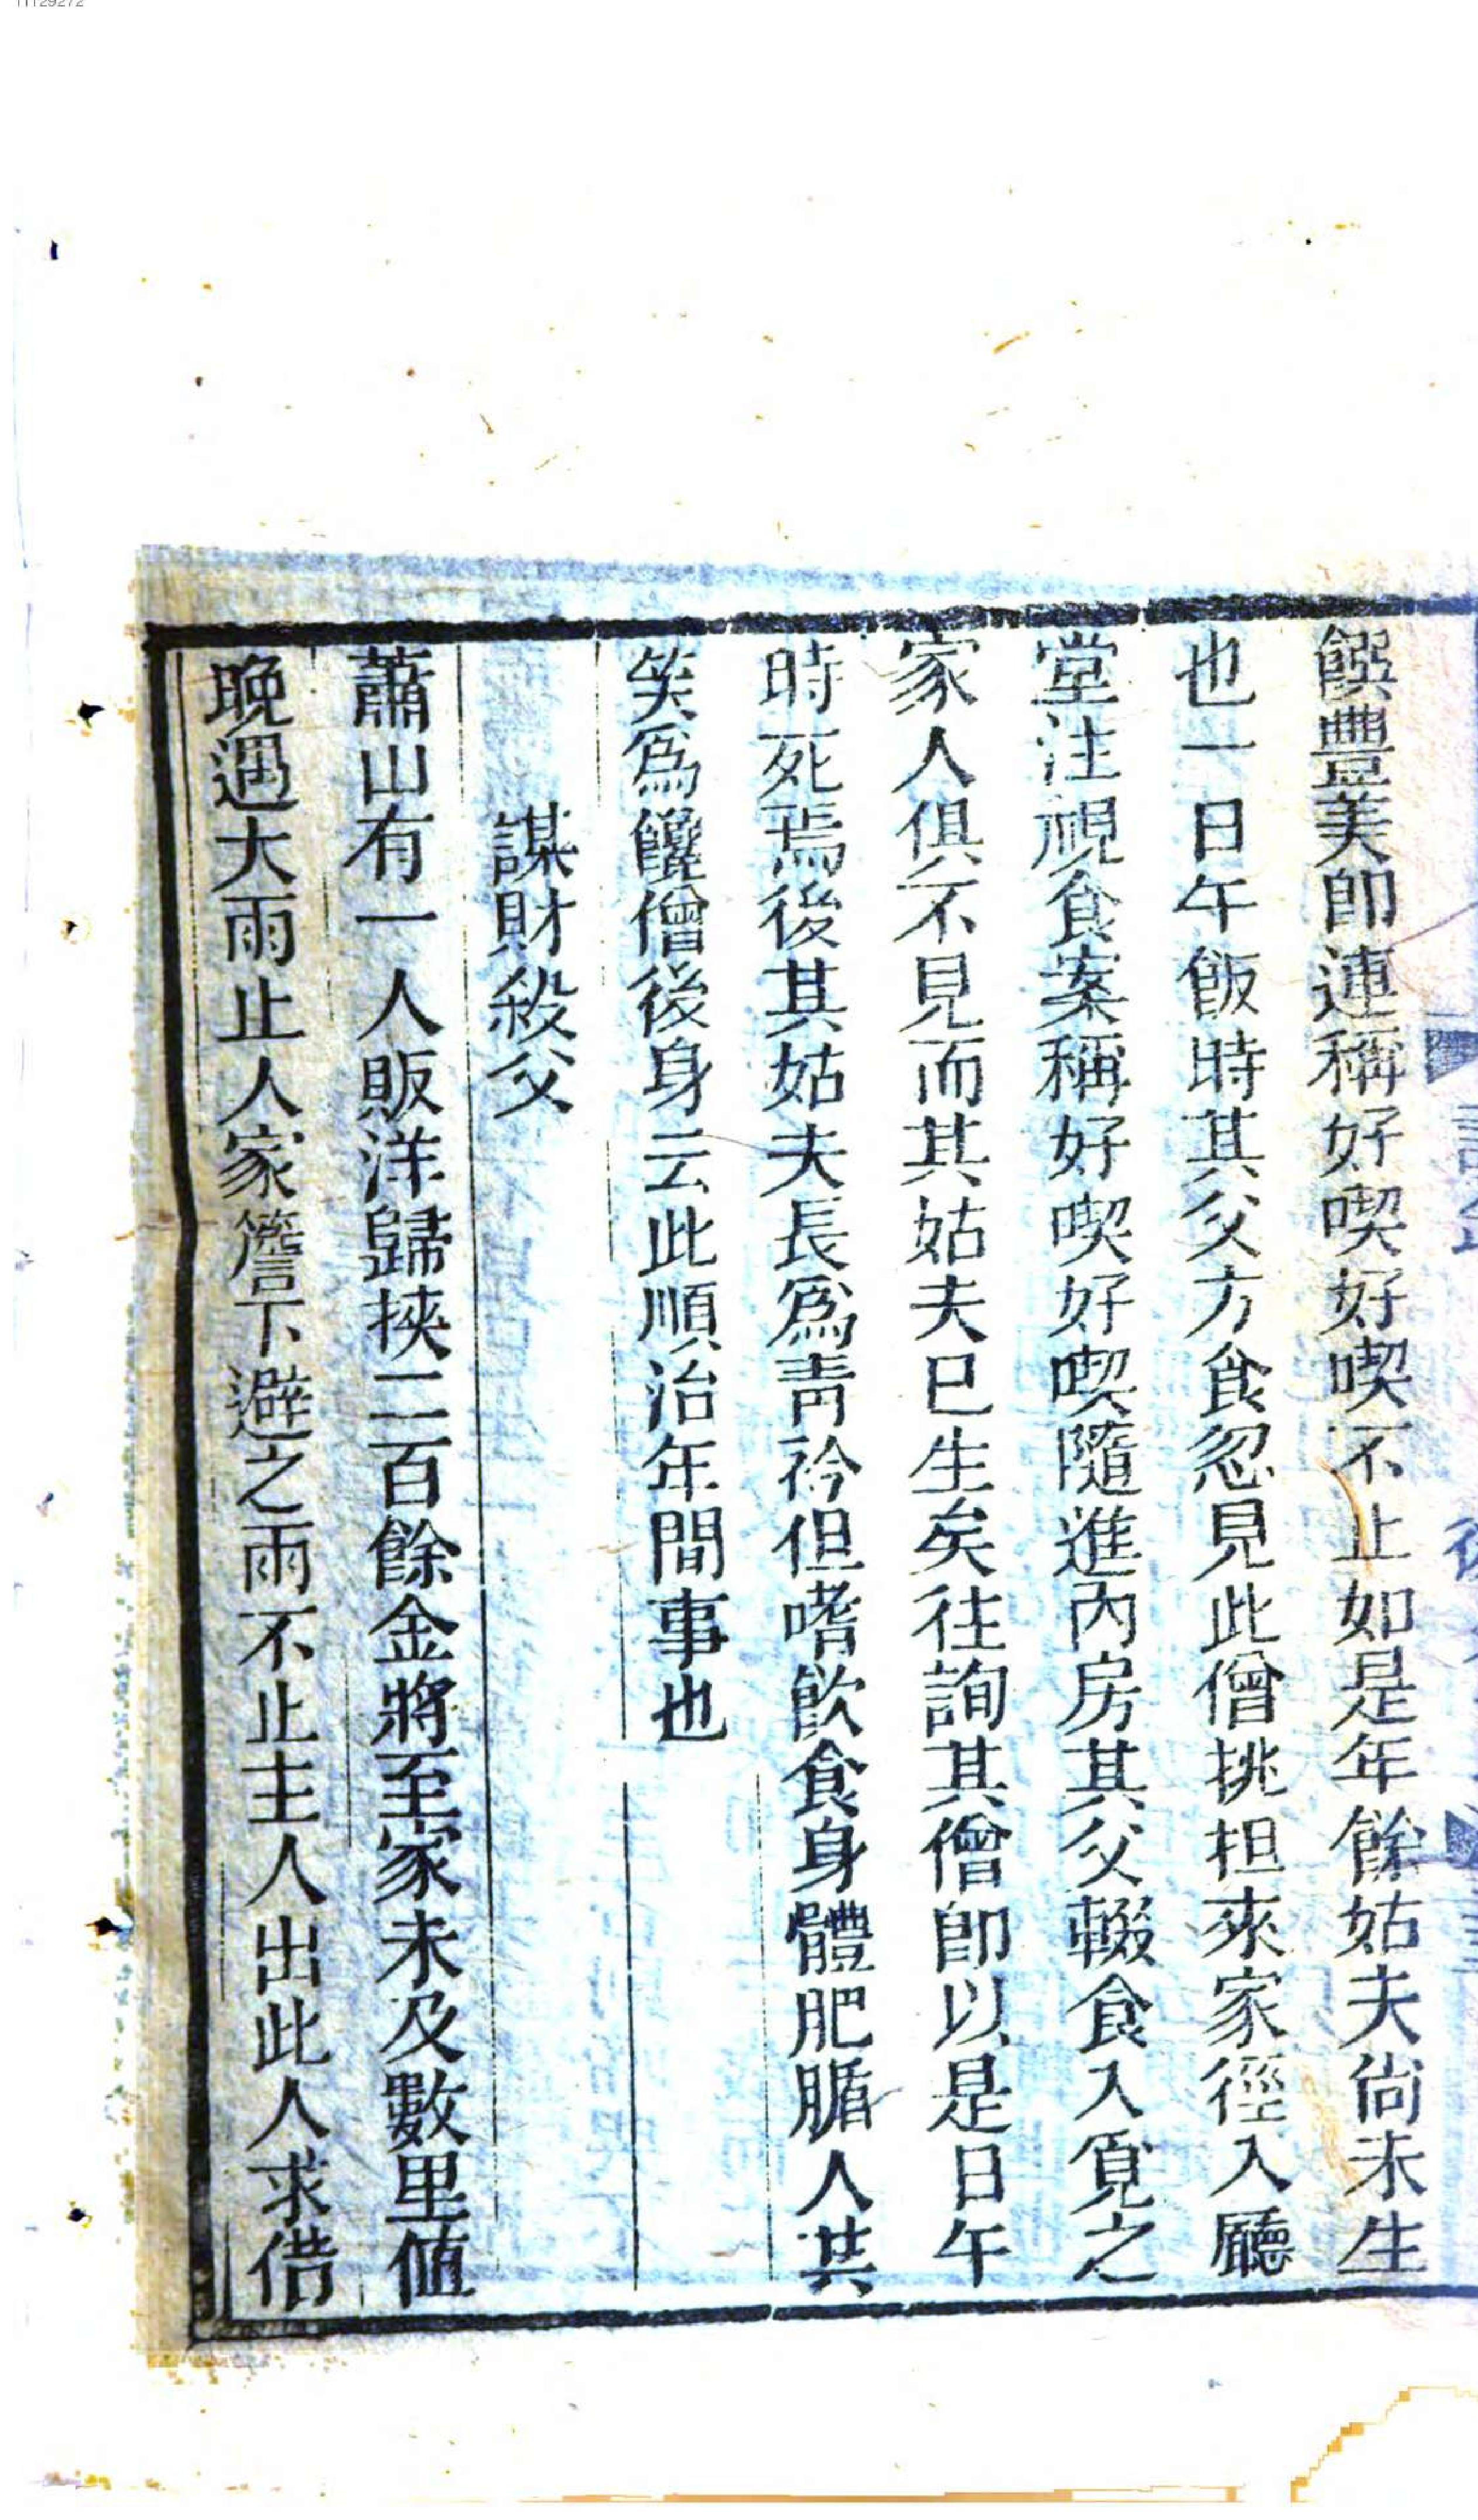 饌豐美即連稱好喫好喫不止如是年餘姑夫尙未生
也一日午飯時其父方食忽見此僧挑担來家徑入廳
堂注視食案稱好喫好喫隨進內房其父輟食入覓之
家人俱不見而其姑夫巳生矣往詢其僧卽以是日午
時死焉後其姑夫長爲靑衿但嗜飮食身體肥腯人共
笑爲饞僧後身云此順治年間事也
謀財殺父
蕭山有一人販洋歸挾二百餘金將至家未及數里値
晚遇大雨止人家簷下避之雨不止主人出此人求借